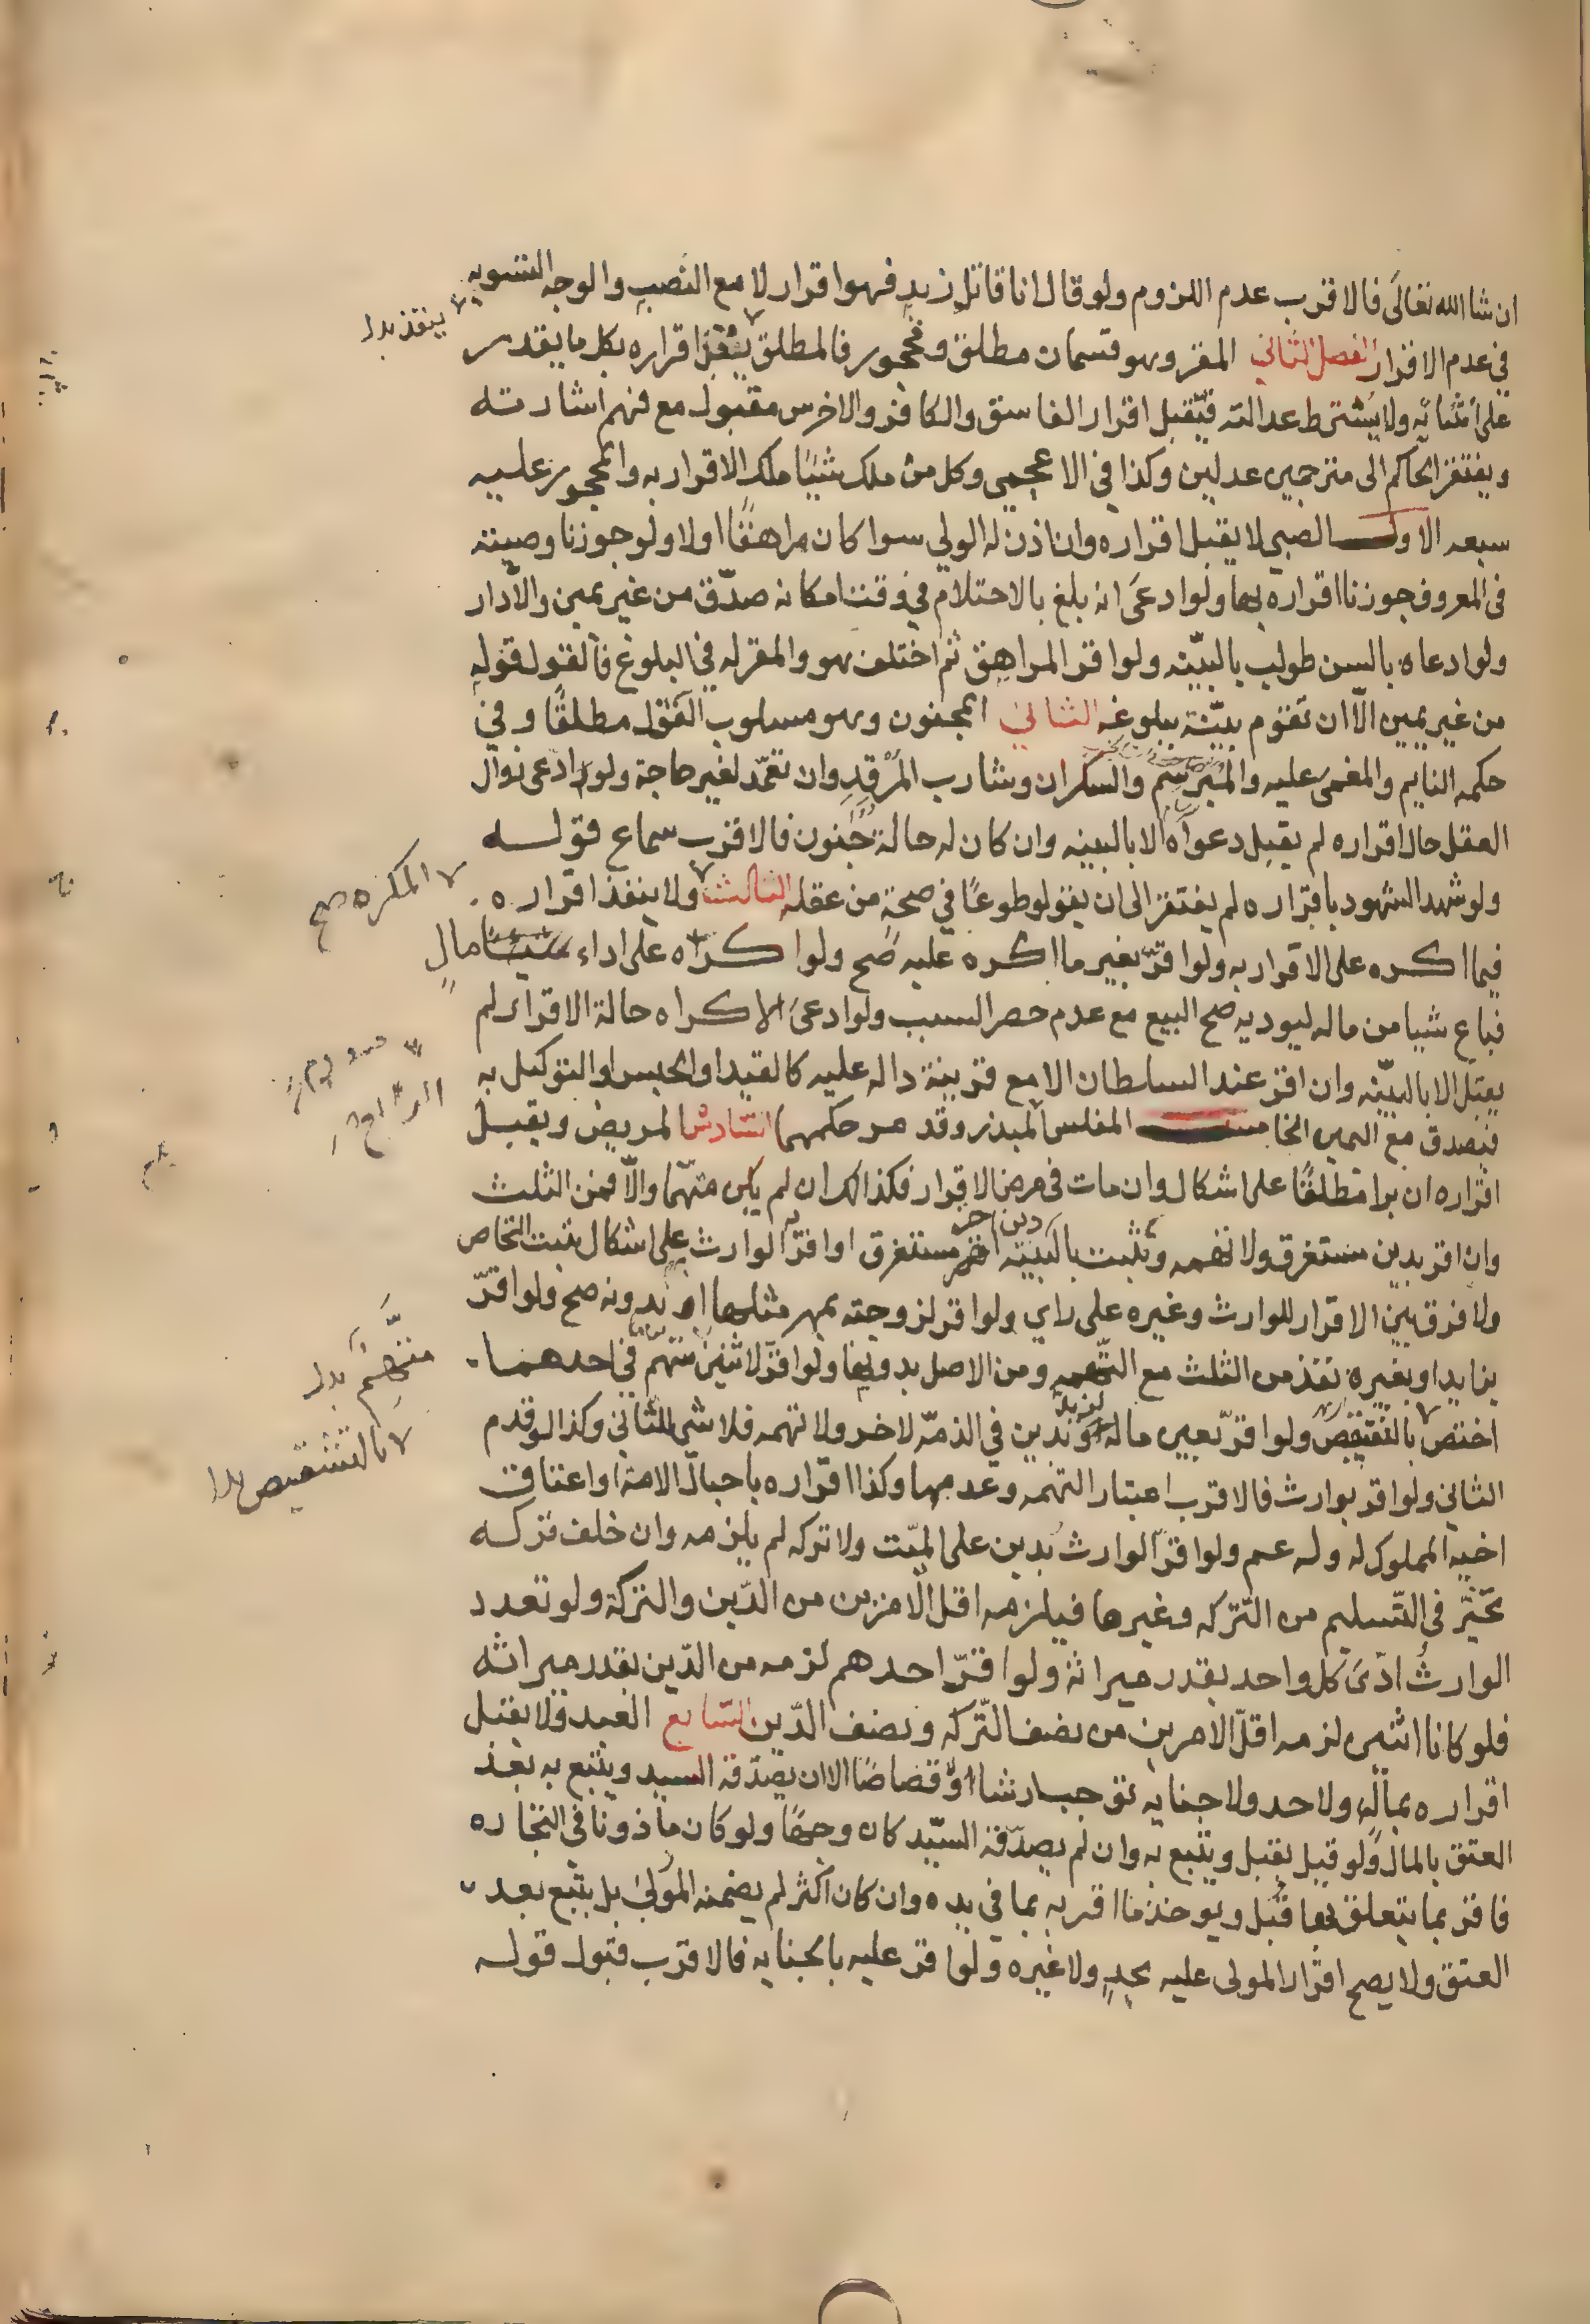 ان شا الله تعالى فالاقرب عدم اللزوم ولو قال انا قاتل زيد فهو اقرار لا مع النصب والوجه التسويه
في عدم الاقرار الفصل الثاني المقر وهو قسمان مطلق ومحجور فالمطلق ينفذ اقراره بكل ما يقدر
ينفذ بدل
على انشائه ولا يشترط عدالته فيقبل اقرار الفاسق والكافر والاخرس مقبول مع فهم اشارته
ويفتقر الحاكم الى مترجمين عدلين وكذا في الاعجمي وكل من ملك شيئا ملك الاقرار به والمحجور عليه
سبعه الاول الصبي لا يقبل اقراره وان اذن له الولي سوا كان مراهقا اولا ولو جوزنا وصيته
في المعروف جوزنا اقراره بها ولو ادعى انه بلغ بالاحتلام في وقت امكانه صدق من غير يمين والا دار
ولو ادعاه بالسن طولب بالبينه ولو اقر المراهق ثم اختلف هو والمقر له في البلوغ فالقول قوله
من غير يمين الا ان تقوم بينة ببلوغه الثاني المجنون وهو مسلوب القول مطلقا وفي
حكمه النايم والمغمى عليه والمبرسم والسكران وشارب المرقد وان تعمد لغير حاجة ولو ادعى زوال
العقل حال اقراره لم يقبل دعواه الا بالبينه وان كان له حالة جنون فالاقرب سماع قوله
ولو شهد الشهود باقراره لم يفتقر الى ان يقولو طوعا في صحة من عقله الثالث ولا ينفذ اقراره
المكره صح
فيما اكره على الاقرار به ولو اقر بغير ما اكره عليه صح ولو اكراه على اداء مال
فباع شيا من ماله ليوديه صح البيع مع عدم حصر السبب ولو ادعى الاكراه حالة الاقرار لم
يقبل الا بالبينه وان اقر عند السلطان الا مع قرينة داله عليه كالقيد او الحبس او التوكيل به
فيصدق مع اليمين الخامس المفلس المبذر وقد مر حكمهما السادس المريض ويقبل
اقراره ان برا مطلقا على اشكال وان مات في مرض الاقرار فكذلك ان لم يكن متهما والا فمن الثلث
وان اقر بدين مستغرق ولا تهمه وثبت بالبينه دين اخر مستغرق او اقر به الوارث على اشكال ثبت التحاص
ولا فرق بين الاقرار للوارث وغيره على راي ولو اقر لزوجته بمهر مثلها او بدونه صح ولو اقر
بزايد او بغيره نفذ من الثلث مع التهمه ومن الاصل بدونها ولو اقر لاثنين متهم في احدهما
متهم بدل
اختص بالتنقيص ولو اقر بعين ماله لزيد وبدين في الذمه لاخر ولا تهمه فلا شي للثاني وكذا لو قدم
بالتشقيص بدل
الثاني ولو اقر بوارث فالاقرب اعتبار التهمه وعدمها وكذا اقراره باحبال الامة او اعتاق
اخيه المملوك له وله عم ولو اقر الوارث بدين على الميت ولا تركه لم يلزمه وان خلف تركه
تخير في التسليم من التركه وغيرها فيلزمه اقل الامرين من الدين والتركة ولو تعدد
الوارث ادى كل واحد بقدر ميراثه ولو اقر احدهم لزمه من الدين بقدر ميراثه
فلو كانا اثنين لزمه اقل الامرين من نصف التركه ونصف الدين السابع العبد ولا يقبل
اقراره بمال ولا حد ولا جنايه توجب ارشا او قصاصا الا ان يصدقه السيد ويتبع به بعد
العتق بالمال ولو قيل يقبل ويتبع به وان لم يصدقه السيد كان وجها ولو كان ماذونا في التجاره
فاقر بما يتعلق بها قبل ويوخذ ما اقر به بما في يده وان كان اكثر لم يضمنه المولى بل يتبع بعد
العتق ولا يصح اقرار المولى عليه بحد ولا غيره ولو اقر عليه بالجنايه فالاقرب قبول قوله